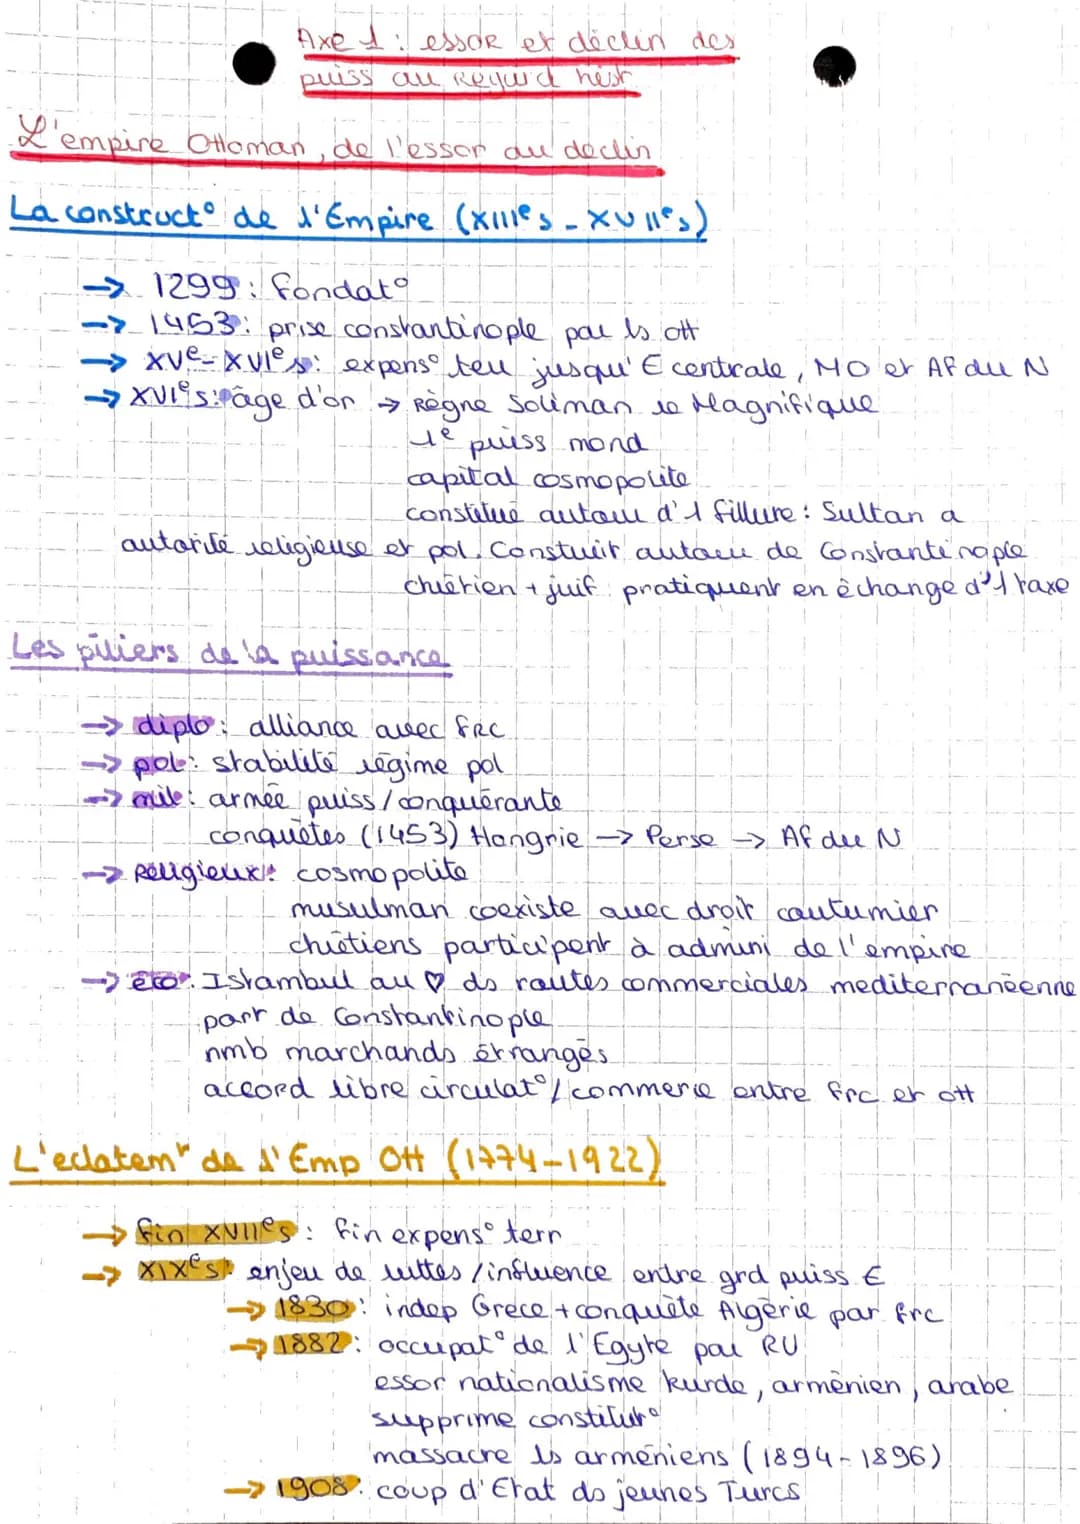 Axe 1 : essor et déclin des
puiss au regard hist
L'empire Ottoman, de l'essor au declin
La construct° de l'Empire (XIIIe s - XVIIe s)
→ 1299 : fondat°
→ 1453 : prise constantinople par ls ott
→ XVe - XVIe s : expens° terr jusqu'E centrale, MO et Af du N
→ XVIe s : âge d'or → Règne Soliman le Magnifique
1e puiss mond
capital cosmopolite
constitué autour d'1 fillure : Sultan a
autorité religieuse et pol. Constuit autour de Constantinople
chrétien + juif : pratiquent en échange d'1 taxe
Les piliers de la puissance
→ diplo : alliance avec frc
→ pol : stabilité régime pol
→ mil : armée puiss/conquérante
conquêtes (1453) Hongrie → Perse → Af du N
→ Religieux : cosmopolite
musulman coexiste avec droit coutumier
chrétiens participent à admini de l'empire
→ éco : Istambul au ♡ ds routes commerciales mediterranéenne
part de Constantinople
nmb marchands étrangés
accord libre circulat°/commerce entre frc et ott
L'eclatemt de l'Emp Ott (1774-1922)
→ fin XVIIe s : fin expens° terr
→ XIXe s : enjeu de luttes/influence entre grd puiss €
→ 1830 : indep Grece + conquête Algérie par frc
→ 1882 : occupat° de l'Egyte par RU
essor nationalisme kurde, arménien, arabe
supprime constitut°
massacre ls arméniens (1894-1896)
→ 1908 : coup d'Etat ds jeunes Turcs